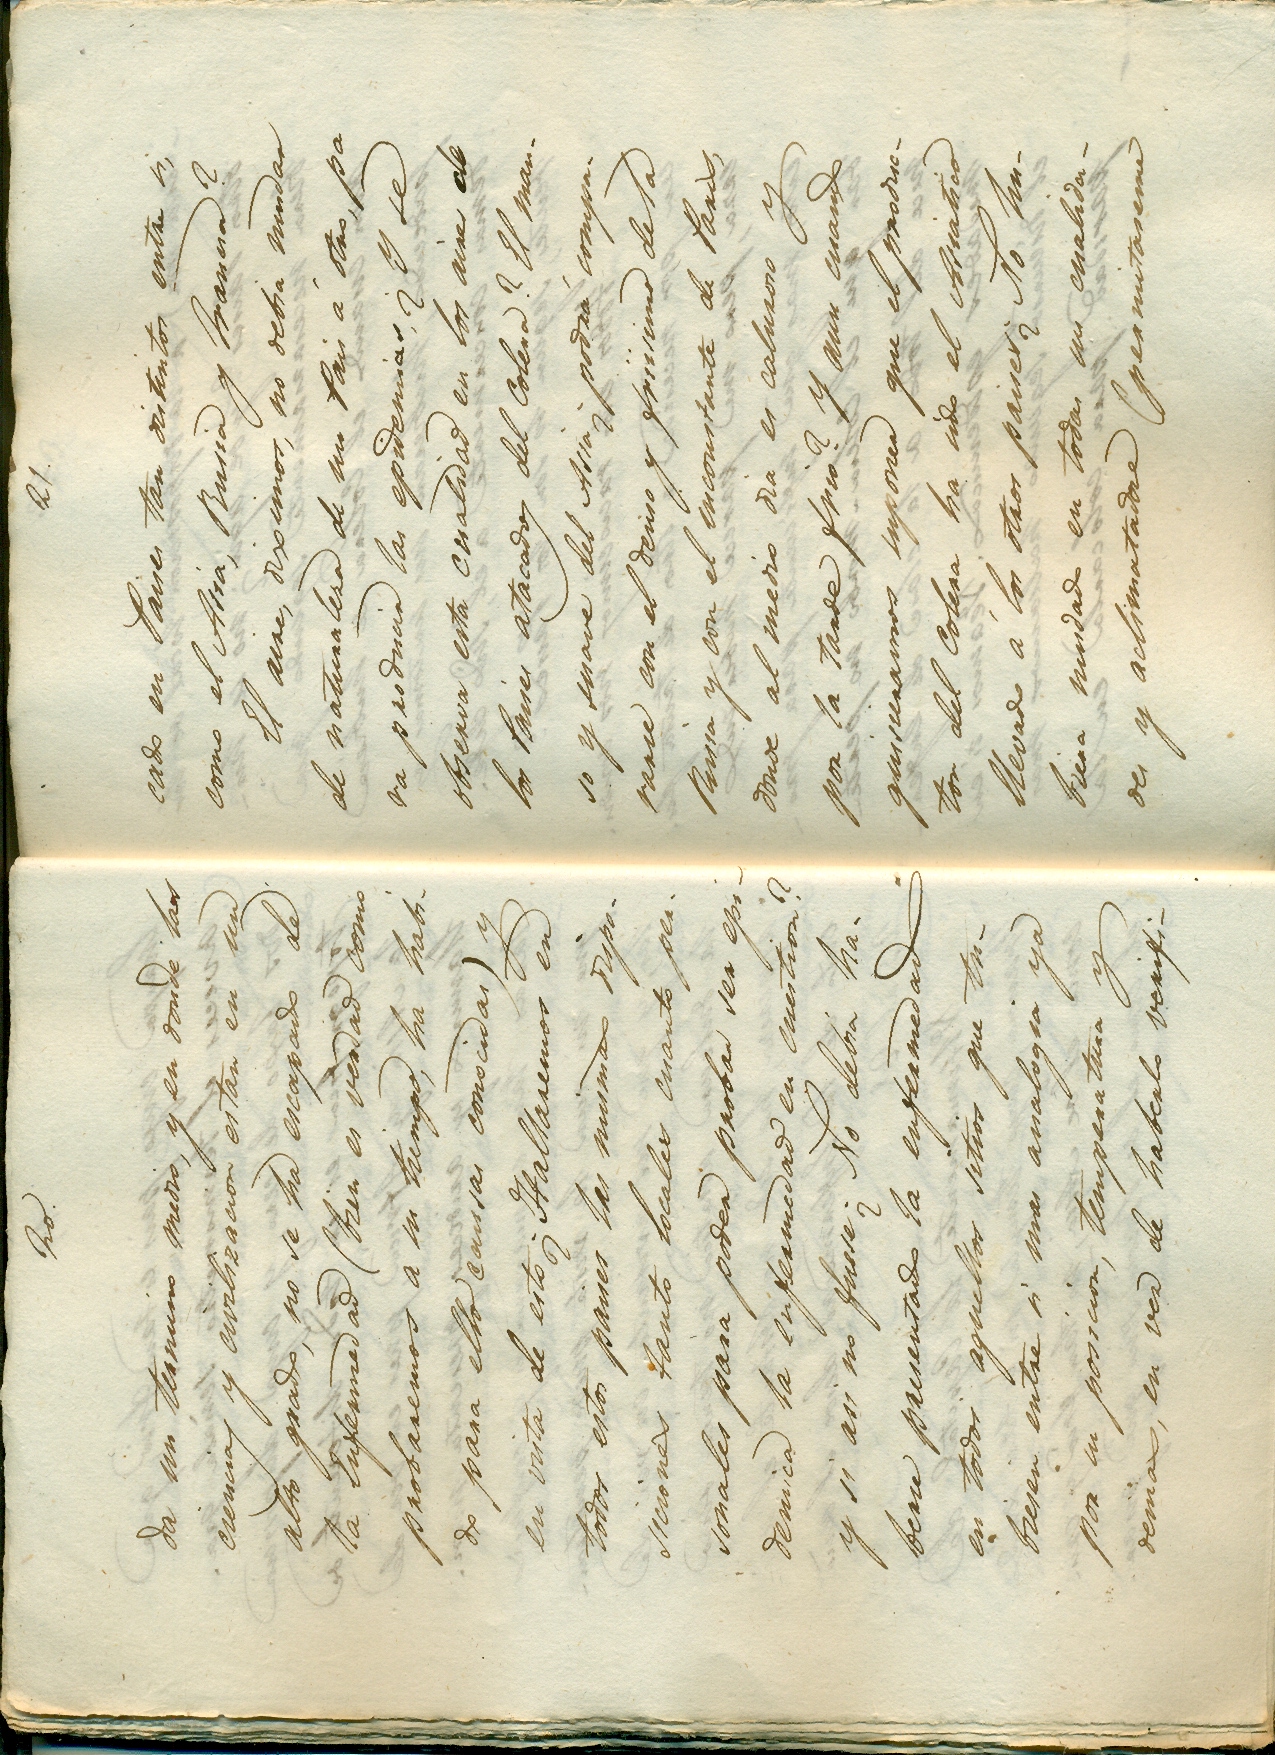 20.
da un termino medio, y en donde las
ciencias y civilizacion estan en un
alto grado, no se ha escapado de
la enfermedad (bien es verdad como
probaremos a su tiempo, ha habi-
do para ello causas conocidas) y
en vista de esto ¿Hallaremos en
todos estos paises las mismas dispo-
siciones tanto locales cuanto per-
sonales para poder probar ser epi-
demica la enfermedad en cuestion?
y si asi no fuese ¿No debia ha-
berse presentado la enfermedad
en todos aquellos sitios que tu-
biesen entre si mas analogia ya
por su posicion, temperatura y
demas, en vez de haberlo verifi-
21.
cado en Paises tan distintos entre si,
como el Asia, Rusia y Francia?
El aire, diximos, no debia mudar
de naturaleza de un Pais á otro, pa
ra producir las epidemias; ¿Y se
observa esta cualidad en los aires de
los Paises atacados del Colera? El man-
so y suave del Asia ¿podrá compa-
rarse con el denso y friisimo de la
Rusia y con el inconstante de Paris,
donde al medio dia es caluroso y
por la tarde frio? Y aun cuando
quisieramos suponer que el produc-
tor del Colera ha sido el Assiatico
llevado á los otros paises ¿No hu-
biera mudado en todas sus cualida-
des y aclimatadose (permitaseme